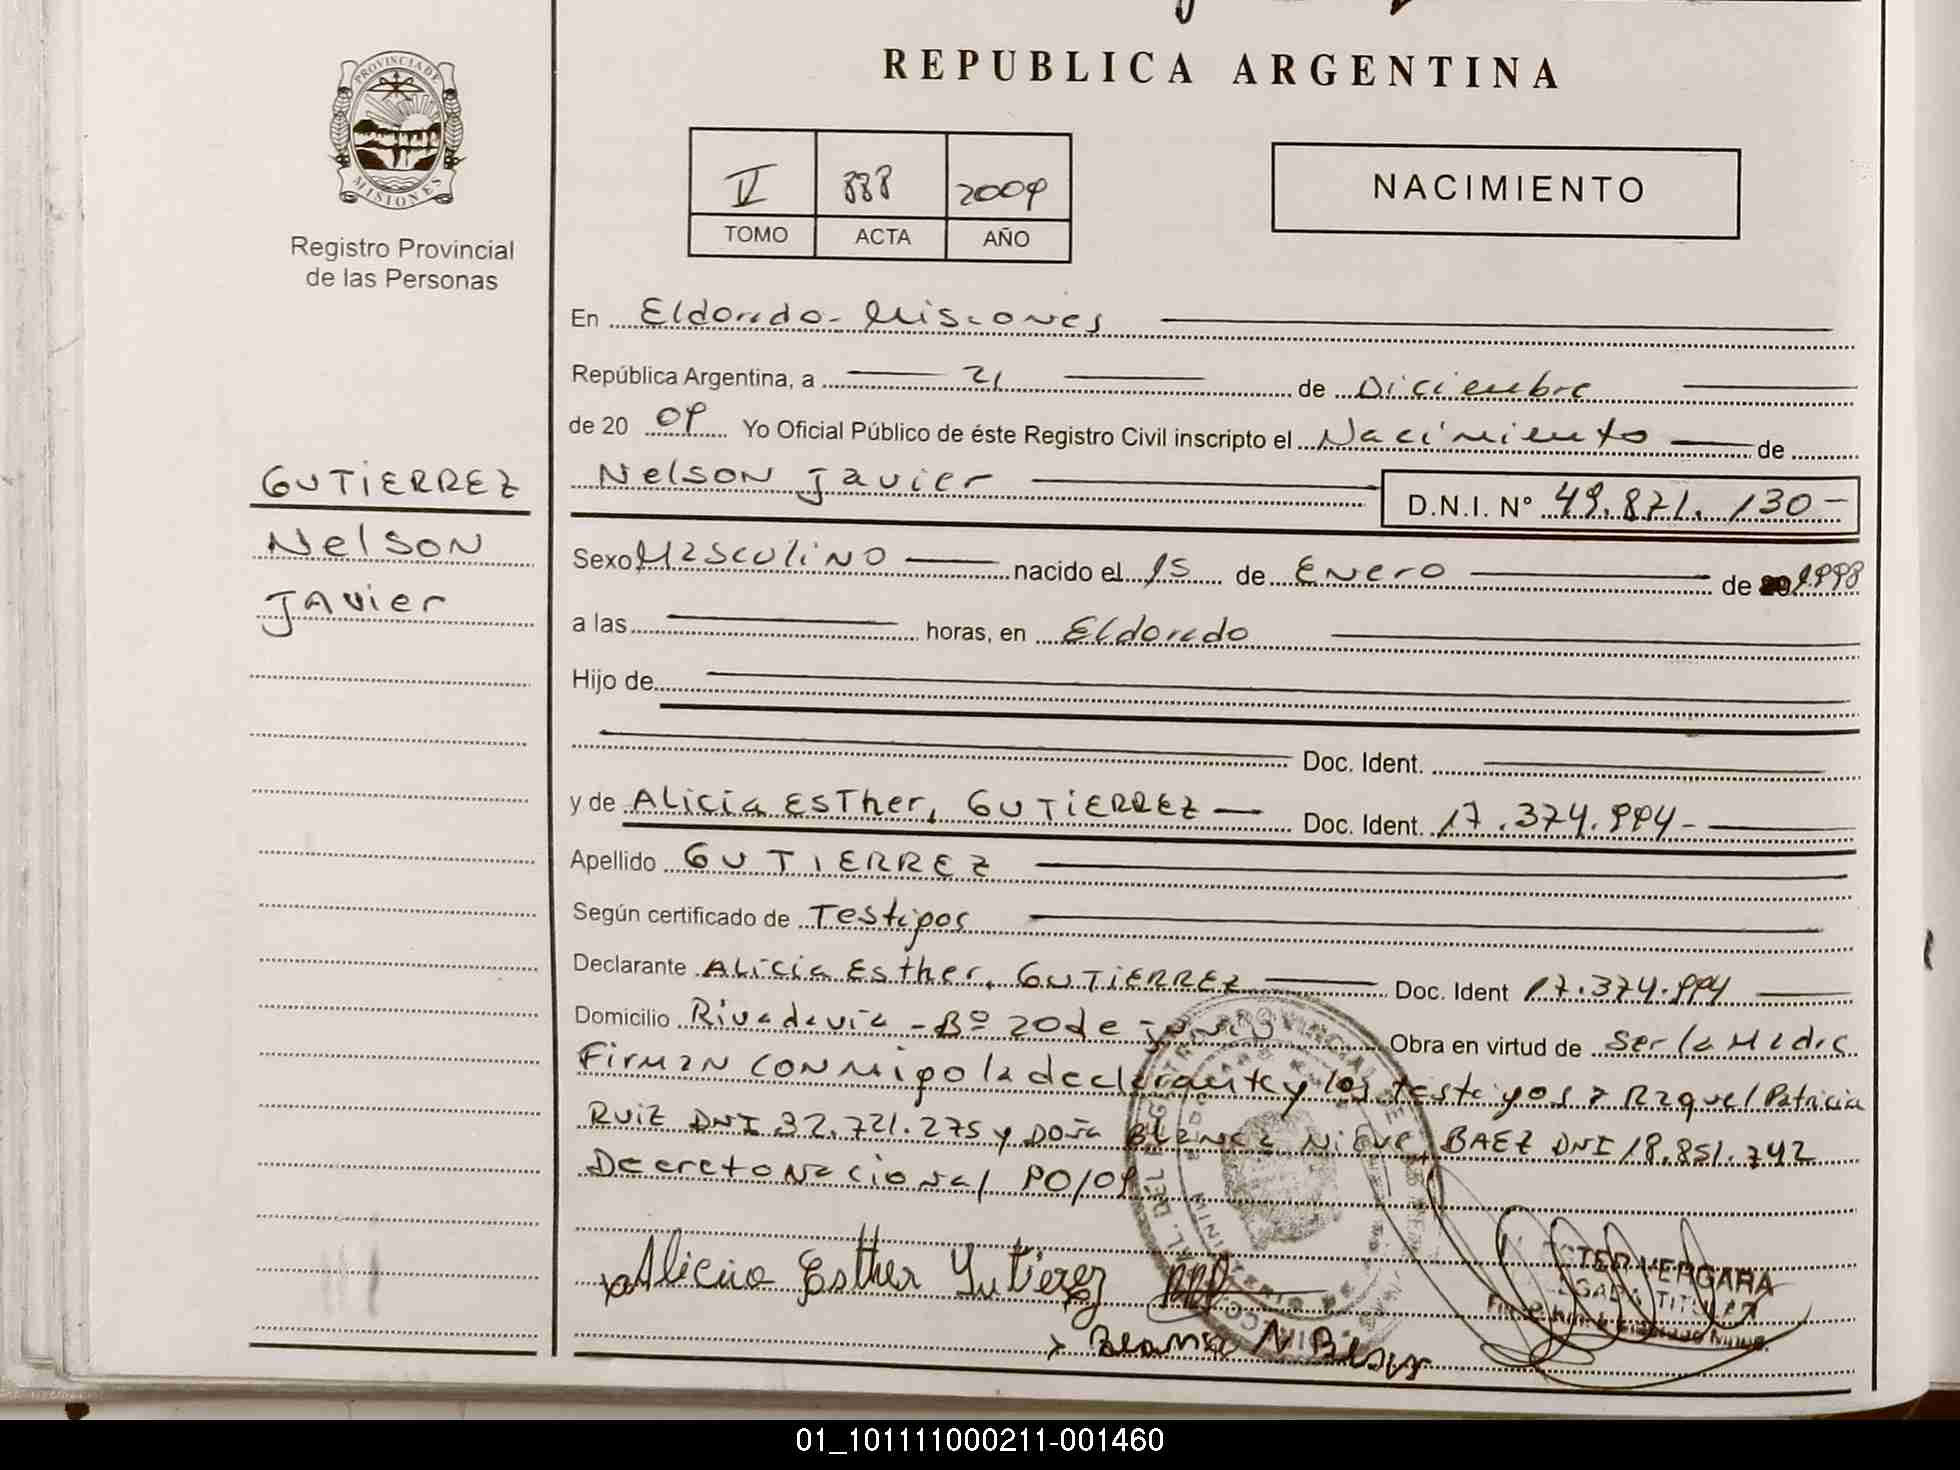 REPUBLICA ARGENTINA
PROVINCIA DE
MISIONES
Registro Provincial
de las Personas
IV 888 2009
TOMO ACTA AÑO
NACIMIENTO
En Eldorado - Misiones
República Argentina, a 21 de Diciembre
de 20 09 Yo Oficial Público de éste Registro Civil inscripto el Nacimiento de
Nelson Javier D.N.I. N° 49.871.130-
GUTIERREZ
Nelson
Javier
Sexo Masculino nacido el 15 de Enero de 1998
a las horas, en Eldorado
Hijo de
Doc. Ident.
y de Alicia Esther, GUTIERREZ Doc. Ident. 17.374.994-
Apellido GUTIERREZ
Según certificado de Testigos
Declarante Alicia Esther, GUTIERREZ Doc. Ident 17.374.994
Domicilio Rivadavia - Bº 20 de junio Obra en virtud de Ser la Madre
Firman conmigo la declarante y los testigos a Raquel Patricia
Ruiz DNI 32.721.275 y Doña Blanca Nieve BAEZ DNI 18.851.742
Decreto Nacional 90/09
Alicia Esther Gutierez
VERGARA
TITULAR
Blanca N Baez
01_101111000211-001460